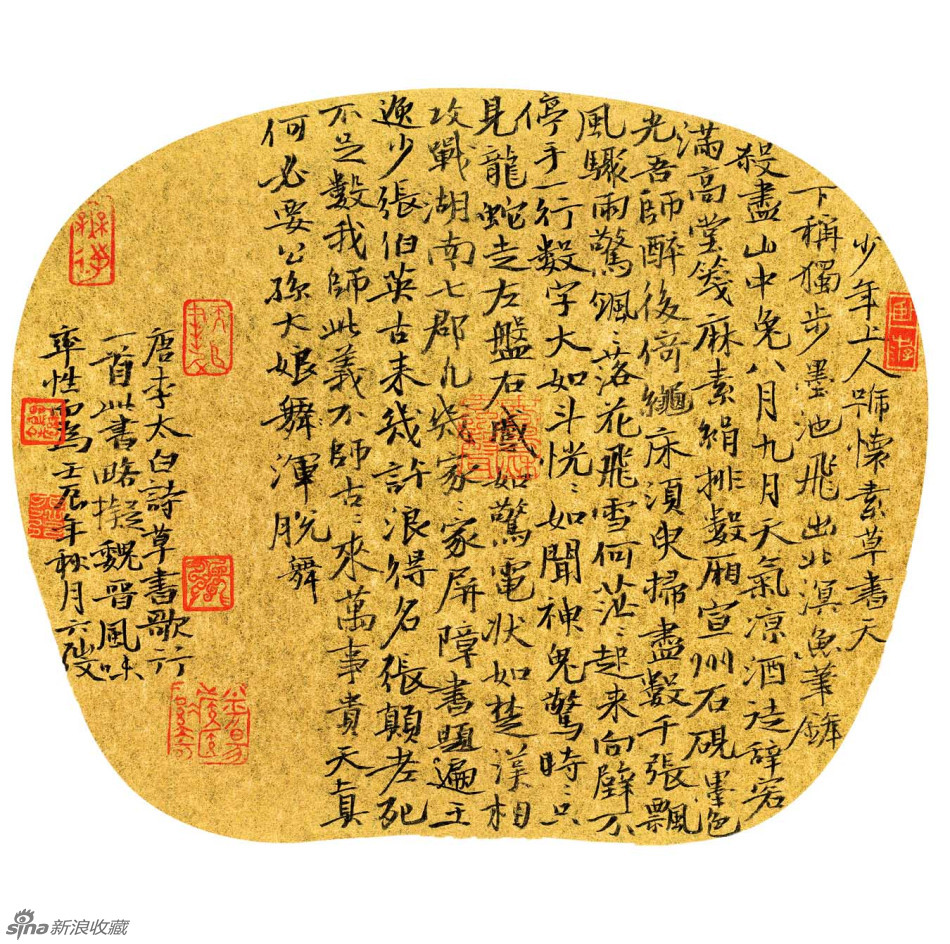 少年上人號懷素草書天
下稱獨步墨池飛出北溟魚筆鋒
殺盡山中兔八月九月天氣凉酒徒辭客
滿高堂箋麻素絹排數廂宣州石硯墨色
光吾師醉後倚繩床須臾掃盡數千張飄
風驟雨驚颯〻落花飛雪何茫〻起來向壁不
停手一行數字大如斗恍〻如聞神鬼驚時〻只
見龍蛇走左盤右蹙如驚電狀如楚漢相
攻戰湖南七郡凡幾家〻家屏障書題遍王
逸少張伯英古来幾許浪得名張顛老死
不足數我師此義不師古〻來萬事貴天真
何必要公孫大娘舞渾脫舞
唐李太白詩草書歌行
一首此書略擬魏晉風味
率性而為壬辰年秋月六
sina新浪收藏